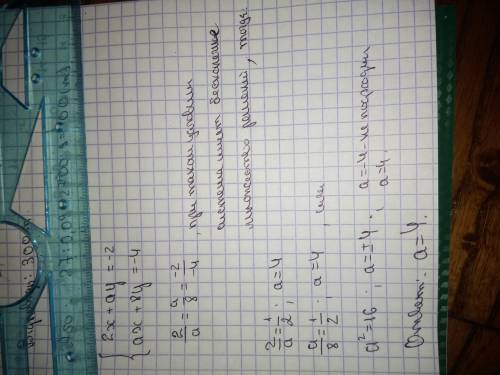 300
{ 2x + ay = -2
{ ax + 8y = -4
2/a = a/8 = -2/-4 , при таком условии
система имеет бесконечное
множество решений, тогда:
2/a = 1/2 ; a = 4
a/8 = 1/2 ; a = 4 , или
a² = 16 ; a = ±4 ; a = -4 - не подходит
a = 4
Ответ: a = 4.